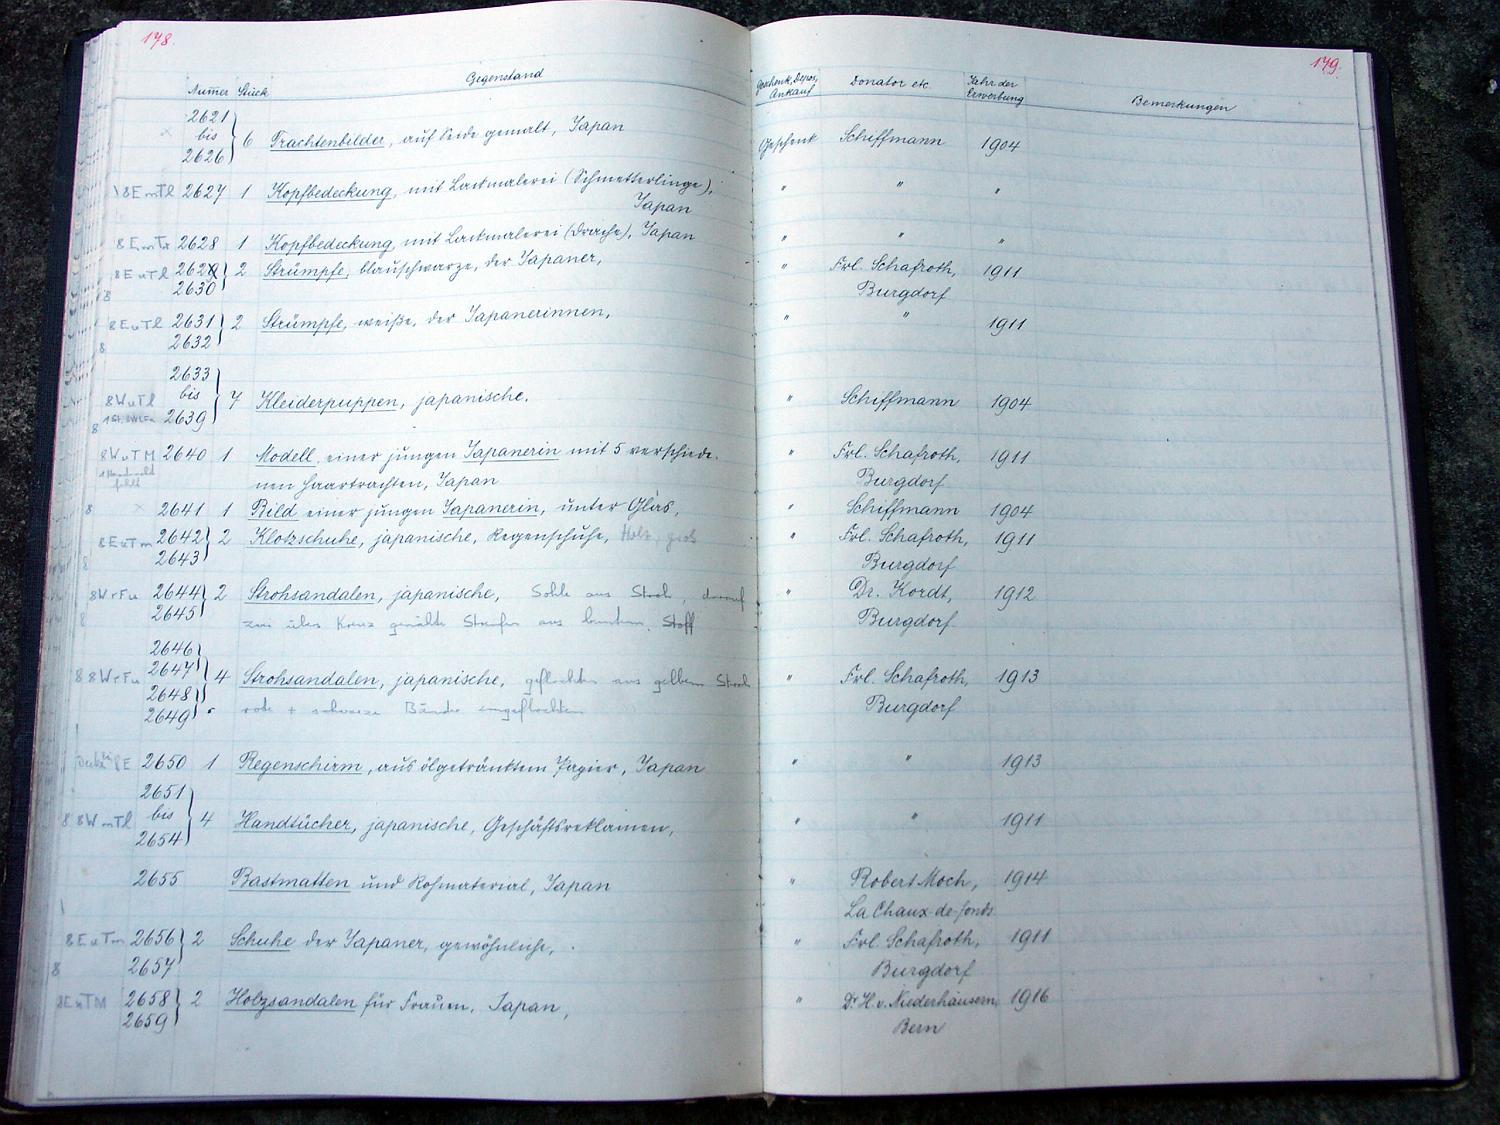 178.
179.
Numer Stück Gegenstand Geschenk, Depos, Ankauf Donator etc. Jahr der Erwerbung Bemerkungen
2621
bis } 6 Trachtenbilder, auf Seide gemalt, Japan Geschenk Schiffmann 1904
2626
8EmTl 2627 1 Kopfbedeckung, mit Lackmalerei (Schmetterlinge), " " "
Japan
8EmTr 2628 1 Kopfbedeckung, mit Lackmalerei (Drache), Japan " " "
8EuTl 2629 } 2 Strümpfe, blauschwarze, der Japaner, " Frl. Schafroth, 1911
8 2630 Burgdorf
8EuTl 2631 } 2 Strümpfe, weiße, der Japanerinnen, " " 1911
8 2632
2633
8WuTl bis } 7 Kleiderpuppen, japanische. " Schiffmann 1904
8 2639
8WuTM 2640 1 Modell einer jungen Japanerin mit 5 verschiede- " Frl. Schafroth, 1911
nen Haartrachten, Japan Burgdorf
8 × 2641 1 Bild einer jungen Japanerin, unter Glas, " Schiffmann 1904
8EuTm 2642 } 2 Klotzschuhe, japanische, Regenschuhe, Holz, grob " Frl. Schafroth, 1911
8 2643 Burgdorf
8WrFu 2644 } 2 Strohsandalen, japanische, Sohle aus Stroh, darauf " Dr. Kordt, 1912
8 2645 zwei übers Kreuz genähte Streifen aus buntem Stoff Burgdorf
2646
8 8WrFu 2647 } 4 Strohsandalen, japanische, geflochten aus gelbem Stroh " Frl. Schafroth, 1913
2648 rote + schwarze Bänder eingeflochten Burgdorf
2649
8E 2650 1 Regenschirm, aus ölgetränktem Papier, Japan " " 1913
2651
8 8WmTl bis } 4 Handtücher, japanische, Geschäftsreklamen, " " 1911
2654
2655 Bastmatten und Rohmaterial, Japan " Robert Moch, 1914
La Chaux-de-fonds
8EuTm 2656 } 2 Schuhe der Japaner, gewöhnliche, " Frl. Schafroth, 1911
8 2657 Burgdorf
8EuTM 2658 } 2 Holzsandalen für Frauen, Japan, " Dr H. v. Niederhäusern, 1916
2659 Bern